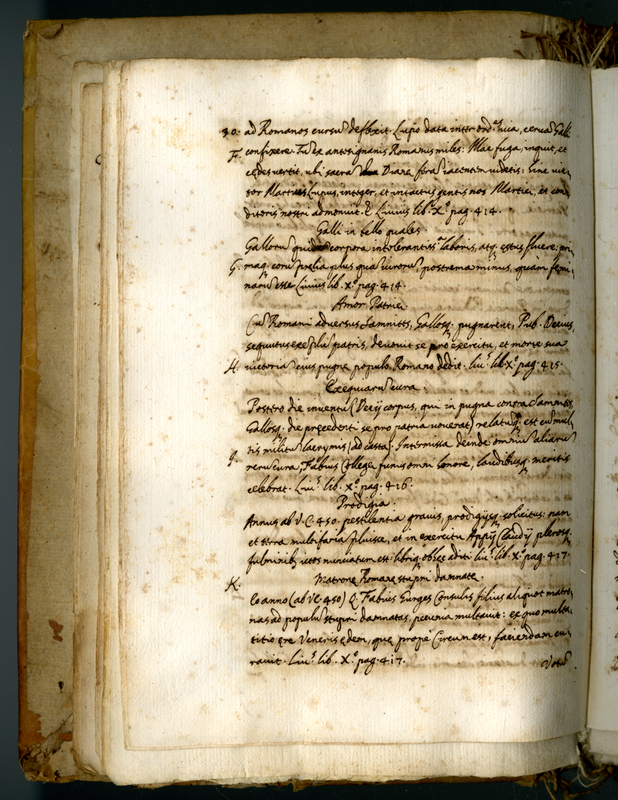 30. ad Romanos cursu deflexit. Lupo data inter ord.s via, cerva Galli
F. confixere. Tu ex antesignanis Romanis miles: Illac fuga, inquit, et
cędes vertit, ubi sacra Dianę fera iacentem videtis: hinc vic-
tor Martius Lupus, integer, et intactus gentis nos Martię, et con-
ditoris nostri admonuit. Livius lib. X.o pag. 414.
Galli in bello quales
Galloru quidem corpora intolerantiss.a laboris, atq. ęstus fluere: pri
G. maq. eoru pręlia plus qua virorũ, postrema minus, quam femi-
narũ esse Livius lib. X.o pag. 414.
Amor Patrię
Cũ Romani adversus Samnites, Gallosq. pugnarent, Pub. Decius,
sequutus exẽplũ patris, devovit se pro exercitu, et morte sua
H. victoria eius pugnę populo Romano dedit. Liu.s lib. X.o pag. 415.
Exequiarũ cura.
Postero die inventũ Decij corpus, qui in pugna contra Samnites,
Gallosq. die pręcedenti se pro patria voverat, relatũq. est cũ mul
I. tis militũ lacrymis (ad castra). Intermissa deinde omniũ aliarũ
rerũ cura, Fabius Collegę funus omni honore, laudibusq. meritis
celebrat. Liu.s lib. X.o pag. 416.
Prodigia
Annus ab V.C. 450. pestilentia gravis, prodigijsq. solicitus: nam
et terra multifariã pluisse, et in exercitu Appij Claudij plerosq.
fulminib. ictos nunciatum est: libriq. ob hęc aditi Liu.s lib. X.o pag. 417.
K. Matronę Romanę stupri damnatę.
Eo anno (ab V.C. 450) Q. Fabius Gurges Consulis filius aliquot matro
nas ad populũ stupri damnatas, pecunia multavit: ex quo multa
titio ęre Veneris ędem, quę propè Circum est, faciendam cu-
ravit. Liu.s lib. X.o pag. 417.
Votũ